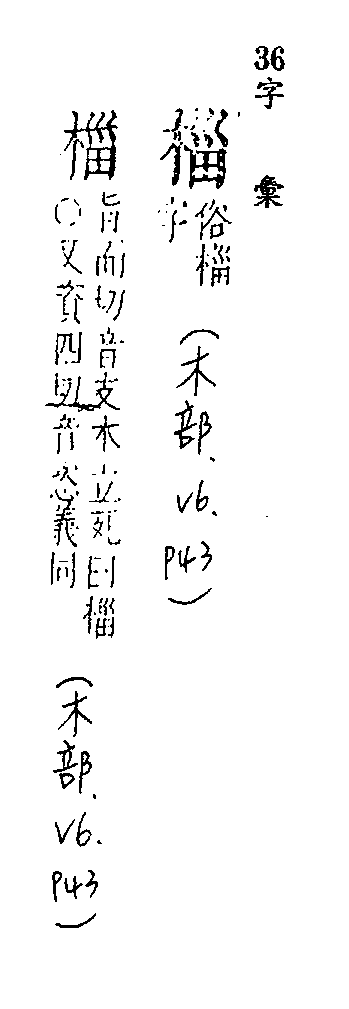 36字彙
俗椔
字
(木部. V6. P43)
椔
旨而切音支木立死曰椔
○又資四切音恣義同
(木部. V6. P43)